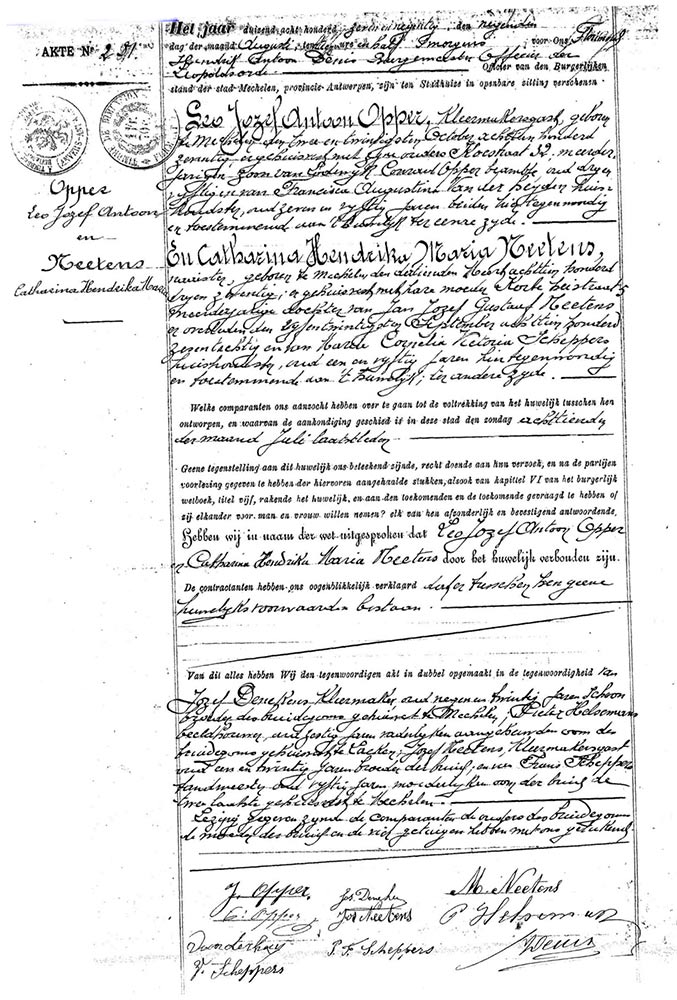 AKTE No 291.
Opper
Leo Jozef Antoon
en
Neetens
Catharina Hendrika Maria
Het jaar duizend acht honderd zeven en negentig den negenden
dag der maand Augusti ten uurs en half 's morgens voor Ons
Hendrik Antoon Denis Burgemeester Officier der
Leopoldsorde Officier van den Burgerlijken
stand der stad Mechelen, provincie Antwerpen, zijn ten Stadhuize in openbare zitting verschenen
Leo Jozef Antoon Opper, Kleermakersgast, geboren
te Mechelen den twee en twintigsten October achttien honderd
zeventig, er gehuisvest met zyne ouders 32, meerder
jarigen zoon van Lodewyk Conrard Opper oud dryen
vyftig en van Francisca Augustina Van der Heyden huis
houdster, oud zeven en vyftig jaren beiden hier tegenwoordig
en toestemmende aan 't huwelyk ter eenre zyde.
En Catharina Hendrika Maria Neetens,
geboren te Mechelen den achttien honderd
dryen zeventig, er gehuisvest met hare moeder
meerderjarige dochter van Jan Jozef Gustaaf Neetens
er overleden den vyfentwintigsten September achttien honderd
zesentachtig en van Maria Cornelia Victoria Scheppers
huishoudster, oud een en vyftig jaren hier tegenwoordig
en toestemmende aan 't huwelyk; ter andere zyde.
Welke comparanten ons aanzocht hebben over te gaan tot de voltrekking van het huwelijk tusschen hen
ontworpen, en waarvan de aankondiging geschied is in deze stad den zondag achttienden
der maand Juli laatstleden
Geene tegenstelling aan dit huwelijk ons beteekend zijnde, recht doende aan hun verzoek, en na de partijen
voorlezing gegeven te hebben der hiervoren aangehaalde stukken, alsook van kapitel VI van het burgerlijk
wetboek, titel vijf, rakende het huwelijk, en aan den toekomenden en de toekomende gevraagd te hebben of
zij elkander voor man en vrouw willen nemen? elk van hen afzonderlijk en bevestigend antwoordende,
Hebben wij in naam der wet uitgesproken dat Leo Jozef Antoon Opper
en Catharina Hendrika Maria Neetens door het huwelijk verbonden zijn.
De contractanten hebben ons oogenblikkelijk verklaard dat er tusschen hen geene
huwelyksvoorwaarden bestaan.
Van dit alles hebben Wij den tegenwoordigen akt in dubbel opgemaakt in de tegenwoordigheid van
Jozef Kleermaker, oud negen en twintig jaren schoon
broeder des bruidegoms gehuisvest te Mechelen; Pieter
beeldhouwer, oud jaren oom des
bruidegoms gehuisvest te Laeken; Jozef Neetens, Kleermakersgast
oud een en twintig jaren broeder der bruid; en van Frans Scheppers
oud vyftig jaren oom der bruid de
twee laatste gehuisvest te Mechelen.
Lezing gegeven zynde de comparanten de ouders des bruidegoms
de moeder des bruid en de vier getuigen hebben met ons geteekend.
J. Opper.
M. Neetens
Opper
Jos Neetens
Vanderhey
P. F. Scheppers
Denis
V. Scheppers